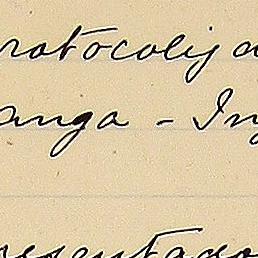 rotocolisa
anga - In
resentado